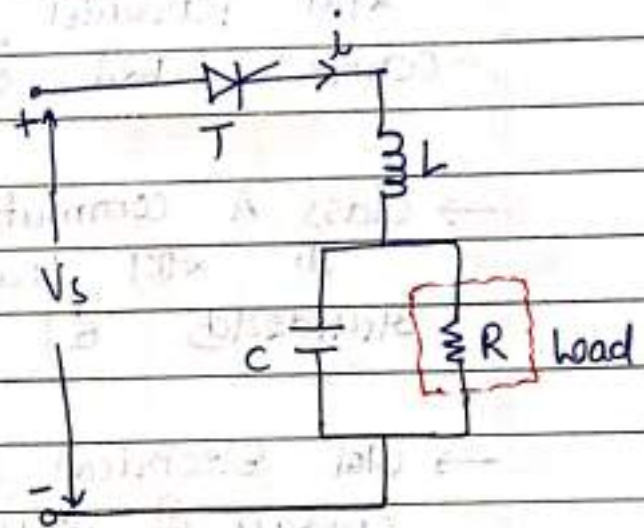 i
+
T
L
Vs
C
R
Load
-